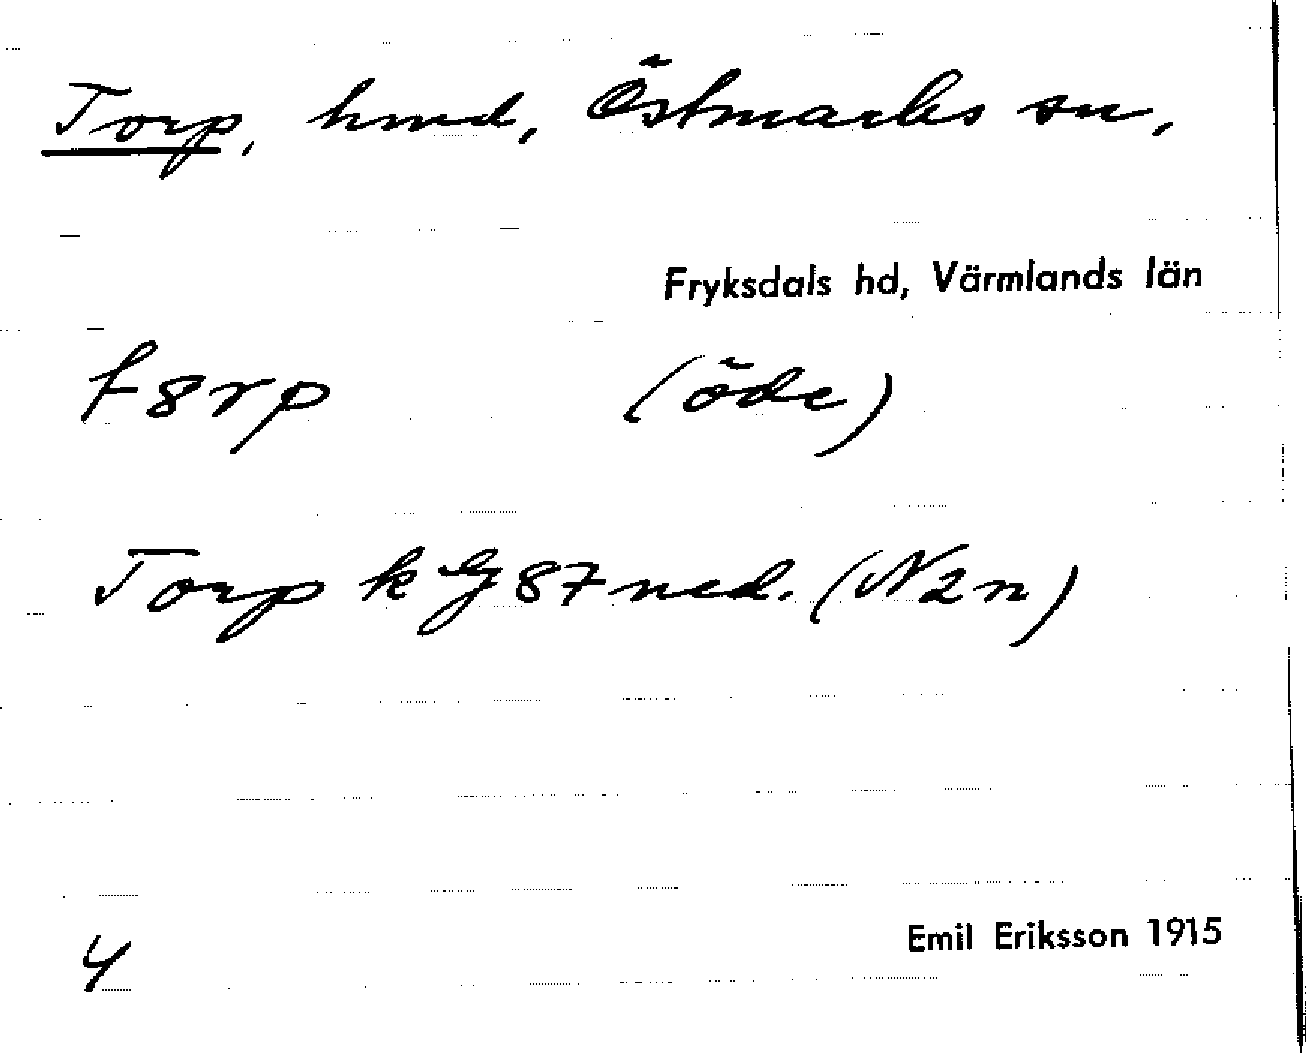 Torp, hmd, Östmarks sn,
Fryksdals hd, Värmlands län
t8rp (öde)
Torp k G 87 ned. (N2n)
4 Emil Eriksson 1915